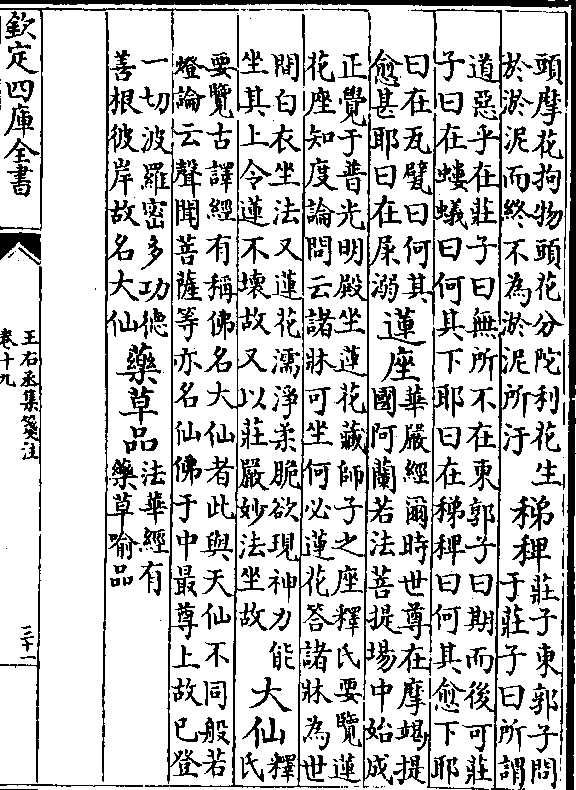 頭摩花拘物頭花分陀利花生
於淤泥而終不為淤泥所汙
稊稗
莊子東郭子問
于莊子曰所謂
道惡乎在莊子曰無所不在東郭子曰期而後可莊
子曰在螻蟻曰何其下耶曰在稊稗曰何其愈下耶
曰在瓦甓曰何其
愈甚耶曰在屎溺
蓮座
華嚴經爾時世尊在摩竭提
國阿蘭若法菩提場中始成
正覺于普光明殿坐蓮花藏師子之座釋氏要覽蓮
花座知度論問云諸牀可坐何必蓮花答諸牀為世
間白衣坐法又蓮花濡淨柔脆欲現神力能
坐其上令蓮不壞故又以莊嚴妙法坐故
大仙
釋
氏
要覽古譯經有稱佛名大仙者此與天仙不同般若
燈論云聲聞菩薩等亦名仙佛于中最尊上故已登
一切波羅密多功德
善根彼岸故名大仙
藥草品
法華經有
藥草喻品
欽定四庫全書
王右丞集箋注
卷十九
三十一